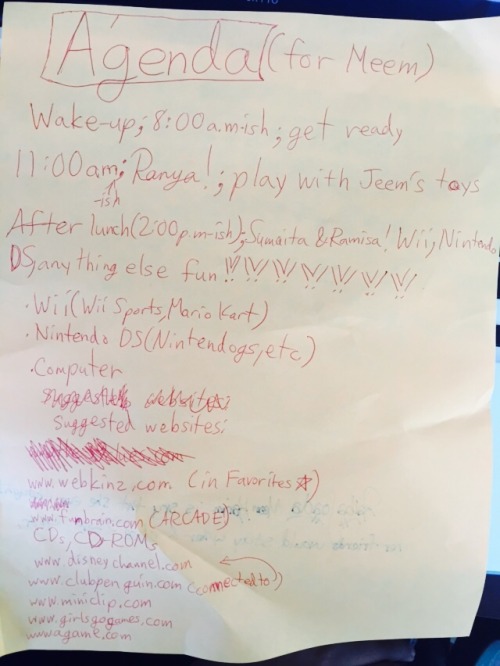 Agenda (for Meem)
Wake-up; 8:00a.m-ish; get ready
11:00am; Ranya!; play with Jeem's toys
-ish
After lunch (2:00p.m-ish); Sumaita & Ramisa! Wii, Nintendo
DS, anything else fun!!!!!!!
· Wii (Wii Sports, Mario Kart)
· Nintendo DS (Nintendogs, etc)
· Computer
suggested websites:
suggested websites:
www.webkinz.com (in Favorites ☆)
www.funbrain.com (ARCADE)
CDs, CD-ROMs
www.disneychannel.com
www.clubpenguin.com (connected to)
www.miniclip.com
www.girlsgogames.com
www.agame.com